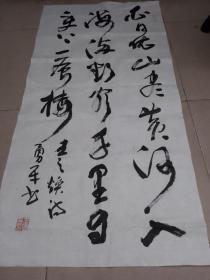 白日依山尽黄河入
海流欲穷千里目
更上一层楼
王之涣诗
勇平书